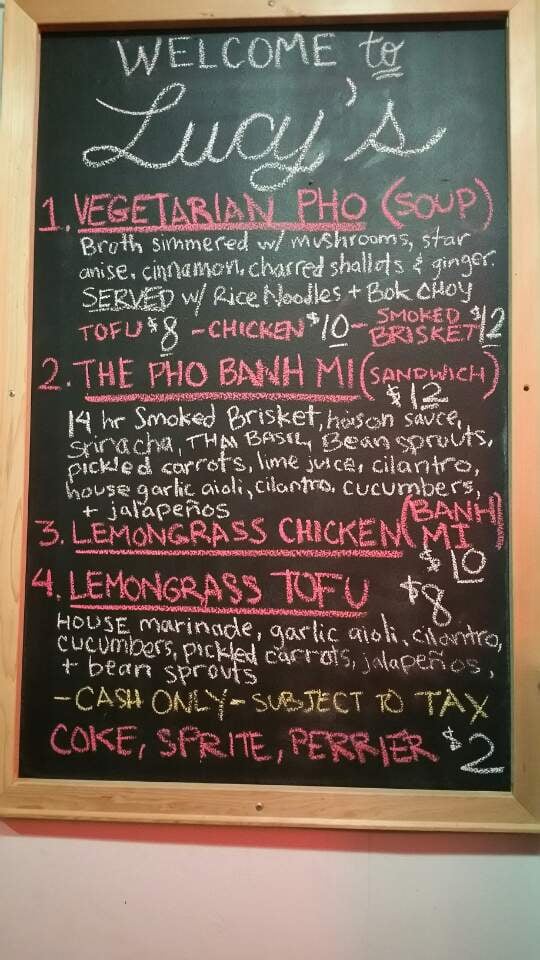 WELCOME to
Lucy's
1. VEGETARIAN PHO (SOUP)
Broth simmered w/ mushrooms, star
anise, cinnamon, charred shallots & ginger.
SERVED w/ Rice Noodles + Bok CHOY
TOFU $8 - CHICKEN $10 - SMOKED BRISKET $12
2. THE PHO BANH MI (SANDWICH)
$12
14 hr Smoked Brisket, hoison sauce,
sriracha, THAI BASIL, Bean sprouts,
pickled carrots, lime juice, cilantro,
house garlic aioli, cilantro, cucumbers,
+ jalapeños
3. LEMONGRASS CHICKEN (BANH MI
$10
4. LEMONGRASS TOFU $8
HOUSE marinade, garlic aioli, cilantro,
cucumbers, pickled carrots, jalapeños,
+ bean sprouts
- CASH ONLY - SUBJECT TO TAX
COKE, SPRITE, PERRIER $2